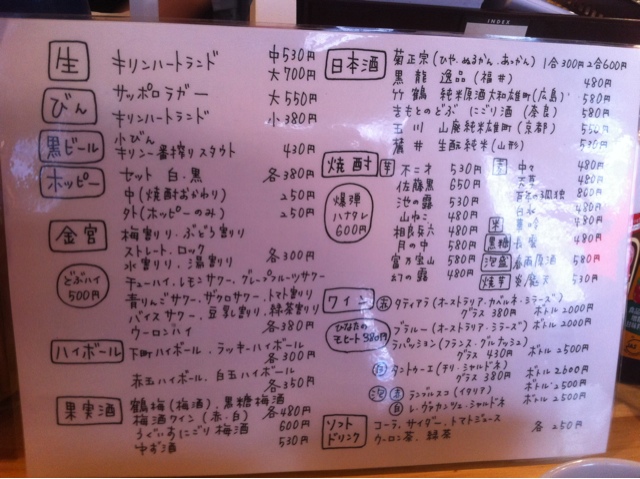 INDEX
生 キリンハートランド 中530円
大700円
びん サッポロラガー 大550円
キリンハートランド 小380円
黒ビール 小びん
キリン一番搾りスタウト 430円
ホッピー セット 白・黒 各380円
中(焼酎おかわり) 250円
外(ホッピーのみ) 250円
金宮 梅割り、ぶどう割り
ストレート、ロック
水割り、湯割り 各300円
どぶハイ 500円
チューハイ、レモンサワー、グレープフルーツサワー
青りんごサワー、ザクロサワー、トマト割り
バイスサワー、豆乳割り、緑茶割り
ウーロンハイ 各380円
ハイボール 下町ハイボール、ラッキーハイボール
各300円
赤玉ハイボール、白玉ハイボール
各350円
果実酒 鶴梅(梅酒)、黒糖梅酒
各480円
梅酒ワイン(赤・白)
うぐいすにごり梅酒 600円
ゆず酒 530円
日本酒 菊正宗(ひや、ぬるかん、あつかん) 1合300円 2合600円
黒龍 逸品(福井) 480円
竹鶴 純米原酒大和雄町(広島) 580円
きもとのどぶ にごり酒(奈良) 580円
玉川 山廃純米雄町(京都) 550円
麓井 生酛純米(山形) 530円
焼酎 芋 不二才 530円
佐藤黒 650円
池の露 530円
山ねこ 480円
相良兵六 480円
月の中 580円
富乃宝山 580円
幻の露 480円
爆弾ハナタレ 600円
麦 中々 480円
天草 480円
百年の孤独 860円
480円
米 480円
黒糖 長雲 480円
泡盛 春雨原酒 580円
焼芋 530円
ワイン 赤 タティアラ(オーストラリア・カベルネ・シラーズ)
グラス 380円 ボトル 2000円
ひなたのモヒート 380円
ブラルー(オーストラリア・シラーズ) ボトル 2000円
ラパッション(フランス・グルナッシュ)
グラス 430円 ボトル 2500円
白 タントゥーエ(チリ・シャルドネ)
グラス 380円 ボトル 2000円
泡 赤 ランブルスコ(イタリア) ボトル 2500円
白 レ・ヴァカンツェ・シャルドネ ボトル 2500円
ソフトドリンク コーラ、サイダー、トマトジュース
ウーロン茶、緑茶 各250円